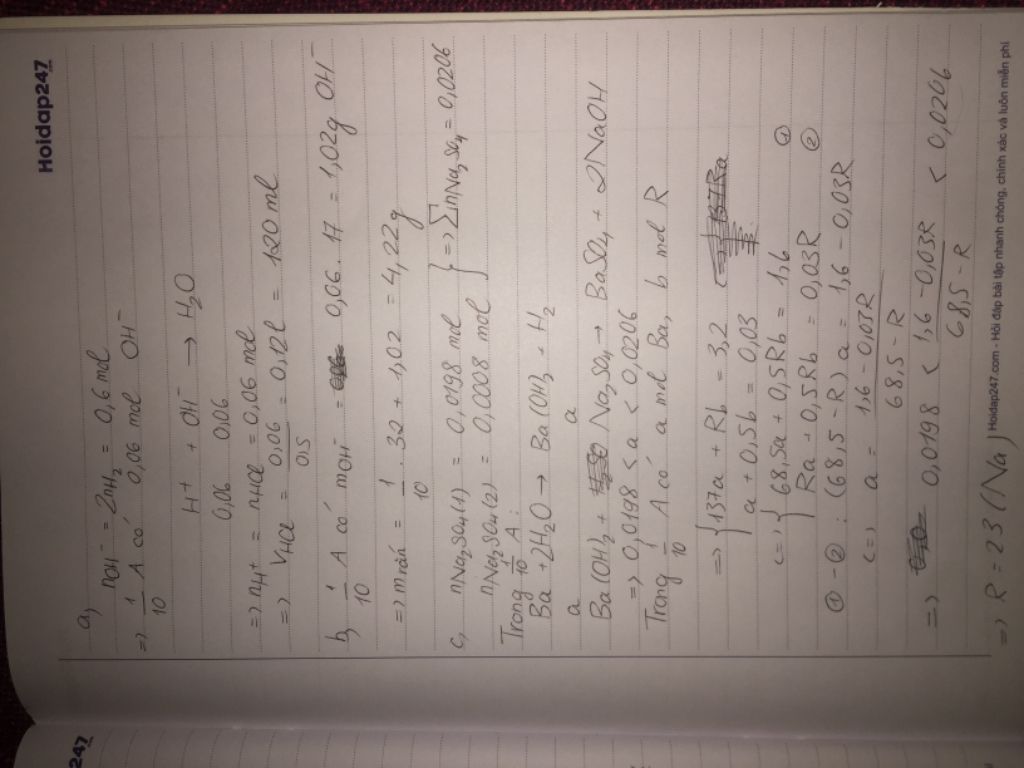 Hoidap247
a, nOH⁻ = 2nH₂ = 0,6 mol
=> 1/10 A có 0,06 mol OH⁻
H⁺ + OH⁻ → H₂O
0,06 0,06
=> nH⁺ = nHCl = 0,06 mol
=> VHCl = 0,06/0,5 = 0,12l = 120 ml
b, 1/10 A có mOH⁻ = 0,06 . 17 = 1,02g OH⁻
=> m rắn = 1/10 . 32 + 1,02 = 4,22g
c, nNa₂SO₄(1) = 0,0198 mol } => ∑nNa₂SO₄ = 0,0206
nNa₂SO₄(2) = 0,0008 mol
Trong 1/10 A:
Ba + 2H₂O → Ba(OH)₂ + H₂
a a
Ba(OH)₂ + Na₂SO₄ → BaSO₄ + 2NaOH
=> 0,0198 < a < 0,0206
Trong 1/10 A có a mol Ba, b mol R
=> { 137a + Rb = 3,2
a + 0,5b = 0,03
(=) { 68,5a + 0,5Rb = 1,6 ①
Ra + 0,5Rb = 0,03R ②
① - ② : (68,5 - R) a = 1,6 - 0,03R
(=) a = 1,6 - 0,03R / 68,5 - R
=> 0,0198 < 1,6 - 0,03R / 68,5 - R < 0,0206
=> R = 23 (Na)
Hoidap247.com - Hỏi đáp bài tập nhanh chóng, chính xác và luôn miễn phí
247